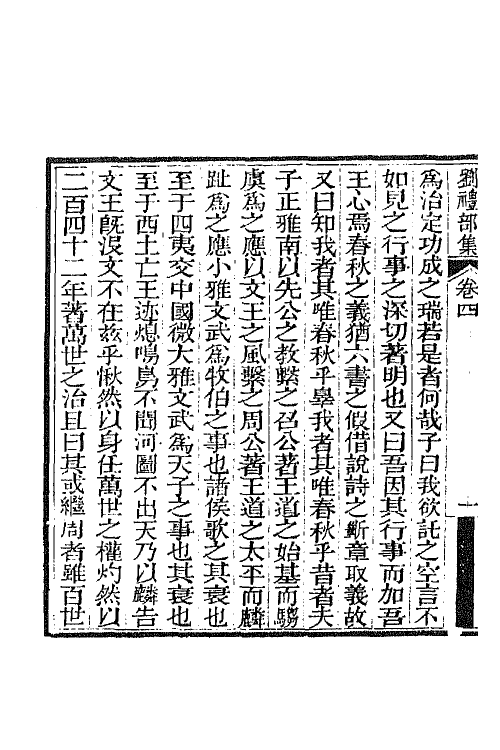 劉禮部集 卷四 一
爲治定功成之瑞若是者何哉子曰我欲託之空言不
如見之行事之深切著明也又曰吾因其行事而加吾
王心焉春秋之義猶六書之假借說詩之斷章取義故
又曰知我者其唯春秋乎辠我者其唯春秋乎昔者夫
子正雅南以先公之教繫之召公著王道之始基而騶
虞爲之應以文王之風繫之周公著王道之太平而麟
趾爲之應小雅文武爲牧伯之事也諸侯歌之其衰也
至于四夷交中國微大雅文武爲天子之事也其衰也
至于西土亡王迹熄鳴鳥不聞河圖不出天乃以麟告
文王旣沒文不在兹乎愀然以身任萬世之權灼然以
二百四十二年著萬世之治且曰其或繼周者雖百世